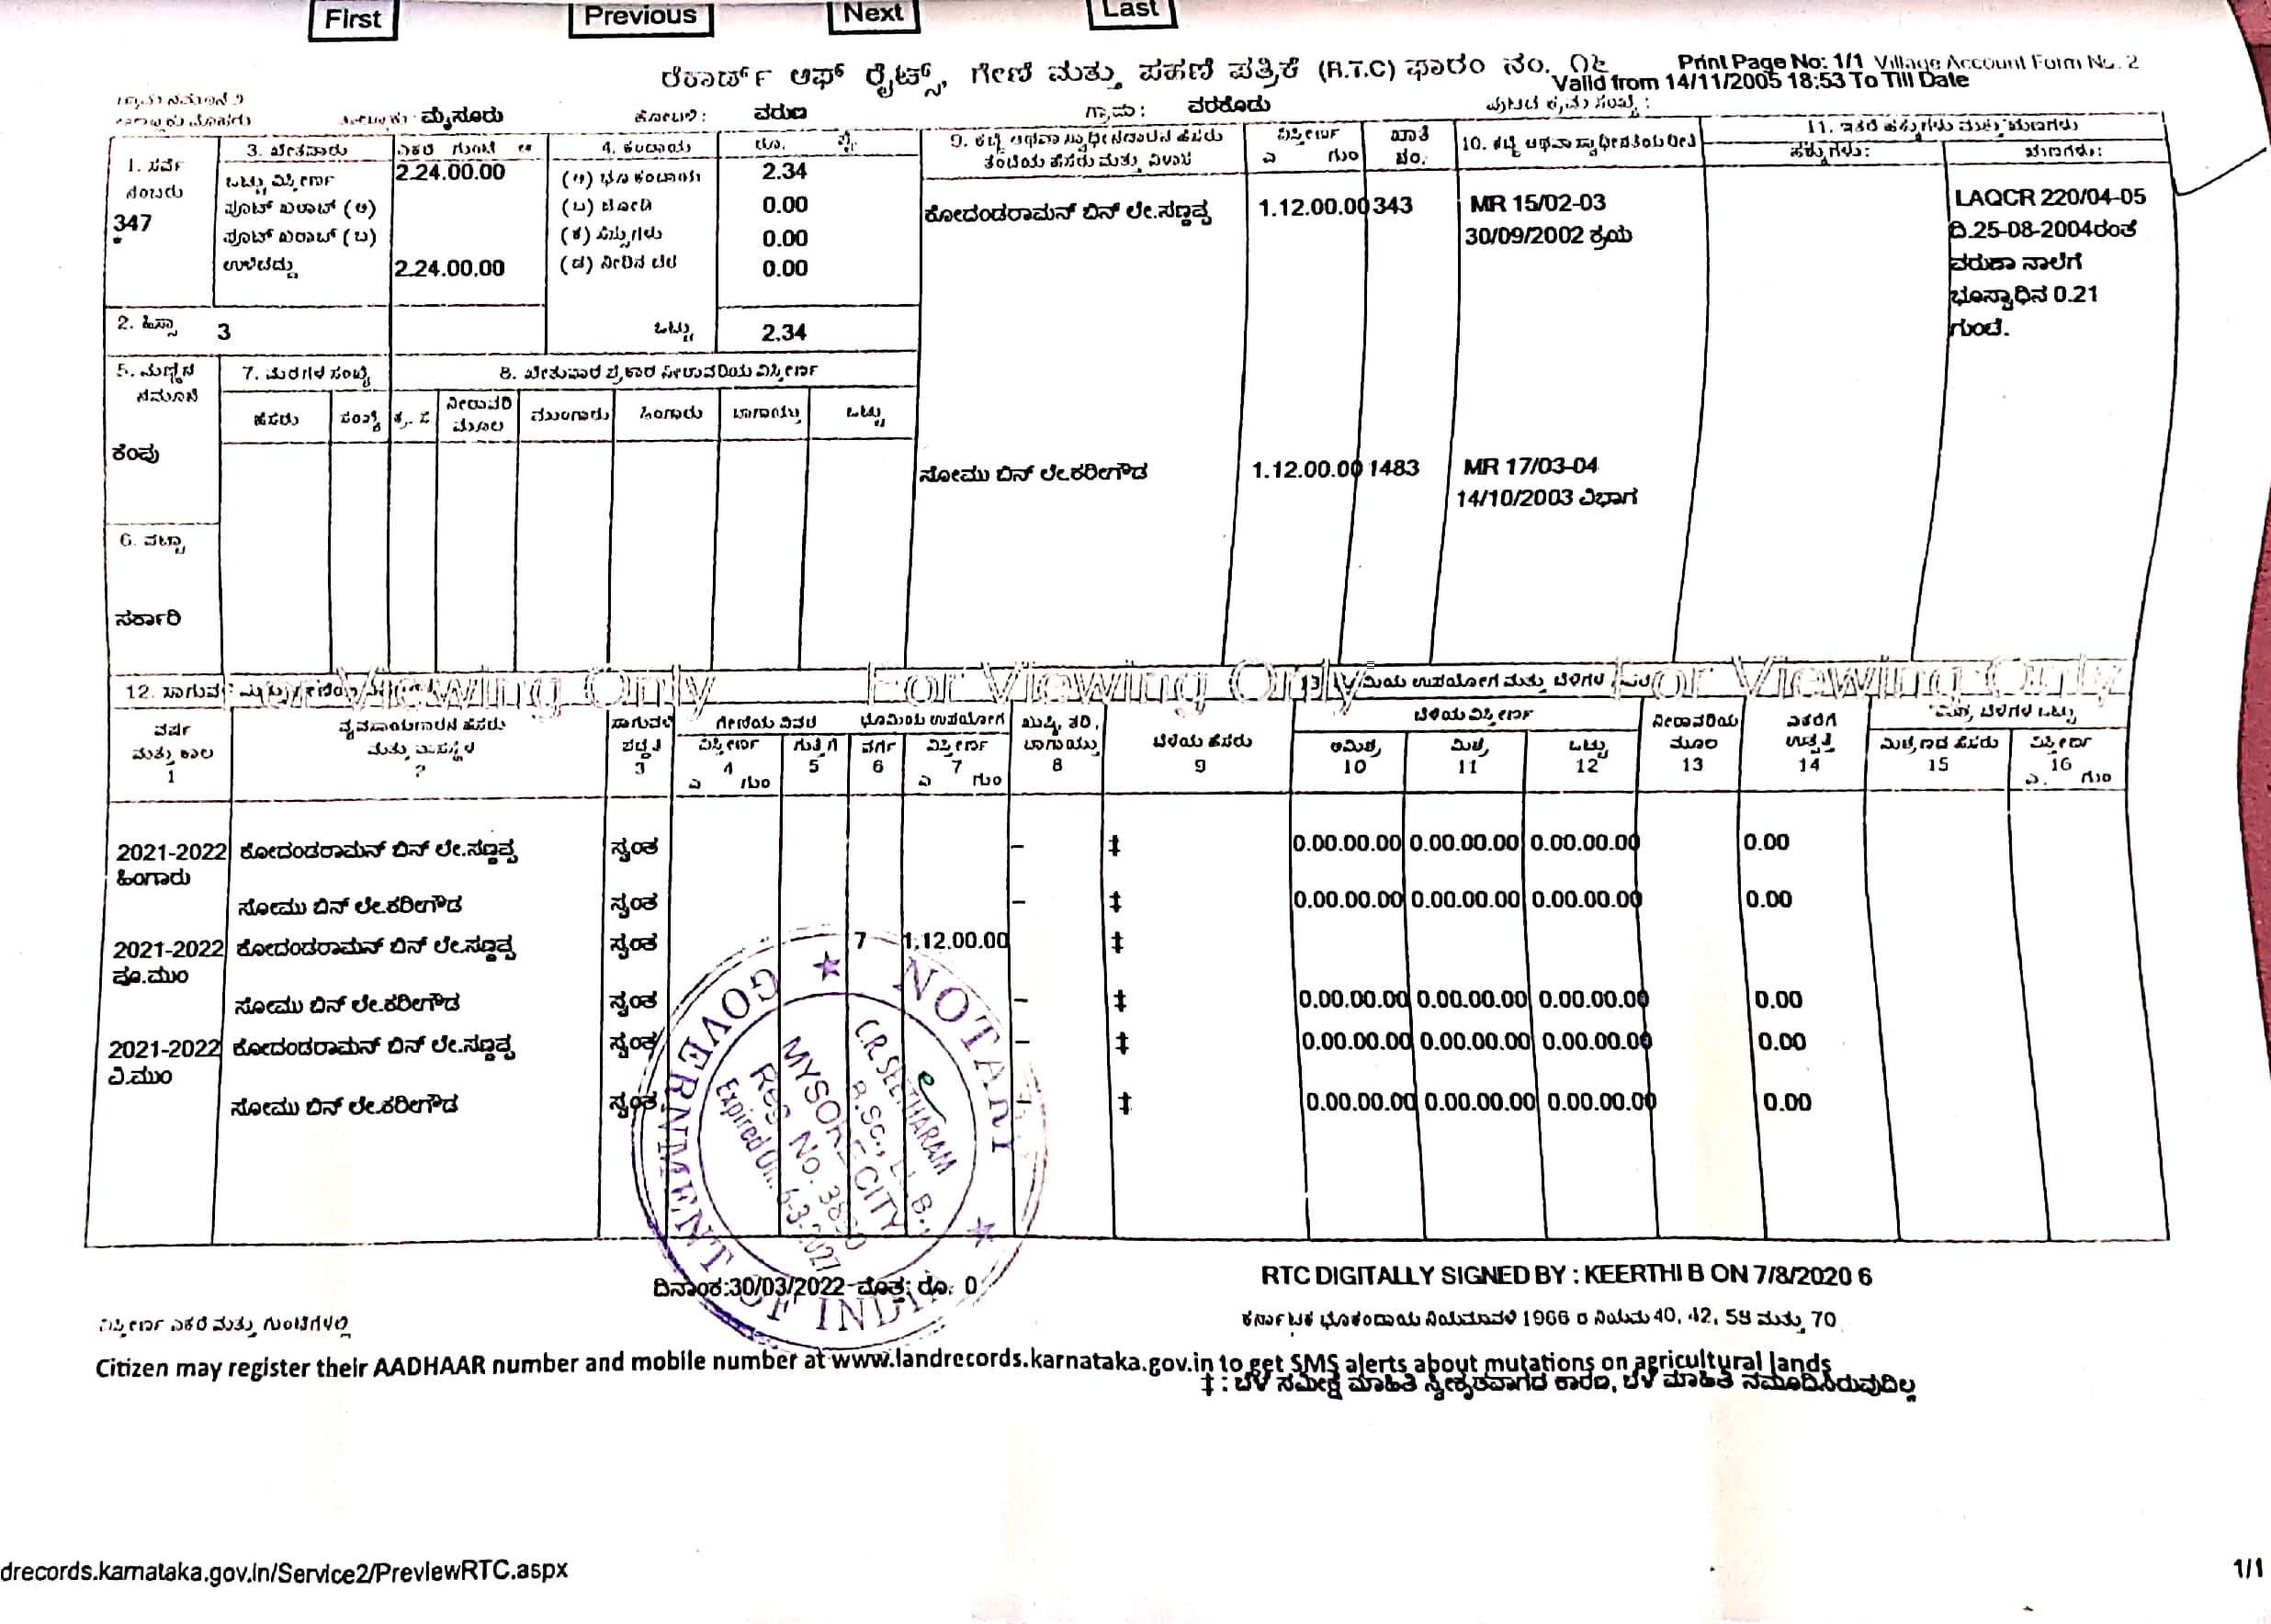 First Previous Next Last
ರೆಕಾರ್ಡ್ ಆಫ್ ರೈಟ್ಸ್, ಗೇಣಿ ಮತ್ತು ಪಹಣಿ ಪತ್ರಿಕೆ (R.T.C) ಫಾರಂ ನಂ. ೧೬
Print Page No: 1/1 Village Account Form No. 2
Valid from 14/11/2005 18:53 To Till Date
ಮೈಸೂರು ಹೋಬಳಿ: ವರುಣ ಗ್ರಾಮ: ವರಕೊಡು ಪುಟದ ಕ್ರಮ ಸಂಖ್ಯೆ:
1. ಸರ್ವೆ ನಂಬರು
347
*
2. ಹಿಸ್ಸಾ 3
3. ಖೇತವಾರು ಎಕರೆ ಗುಂಟೆ ಆ
ಒಟ್ಟು ವಿಸ್ತೀರ್ಣ 2.24.00.00
ಪೂಟ್ ಖರಾಬ್ (ಅ)
ಪೂಟ್ ಖರಾಬ್ (ಬ)
ಉಳಿದದ್ದು 2.24.00.00
4. ಕಂದಾಯ ರೂ. ಪೈ.
(ಅ) ಭೂ ಕಂದಾಯ 2.34
(ಬ) ಜೋಡಿ 0.00
(ಕ) ಸೆಸ್ಸುಗಳು 0.00
(ಡ) ನೀರಿನ ದರ 0.00
ಒಟ್ಟು 2.34
5. ಮಣ್ಣಿನ ನಮೂನೆ
ಕೆಂಪು
6. ಪಟ್ಟಾ
ಸರ್ಕಾರಿ
7. ಮರಗಳ ಸಂಖ್ಯೆ
ಹೆಸರು ಸಂಖ್ಯೆ
8. ಖೇತುವಾರ ಪ್ರಕಾರ ನೀರಾವರಿಯ ವಿಸ್ತೀರ್ಣ
ಕ್ರ. ಸ ನೀರಾವರಿ ಮೂಲ ಮುಂಗಾರು ಹಿಂಗಾರು ಬಾಗಾಯ್ತು ಒಟ್ಟು
9. ಕಬ್ಜೆ ಅಥವಾ ಸ್ವಾಧೀನದಾರನ ಹೆಸರು
ತಂದೆಯ ಹೆಸರು ಮತ್ತು ವಿಳಾಸ
ವಿಸ್ತೀರ್ಣ
ಎ ಗುಂ
ಖಾತೆ ನಂ.
10. ಕಬ್ಜೆ ಅಥವಾ ಸ್ವಾಧೀನತೆಯ ರೀತಿ
11. ಇತರೆ ಹಕ್ಕುಗಳು ಮತ್ತು ಋಣಗಳು
ಹಕ್ಕುಗಳು: ಋಣಗಳು:
ಕೋದಂಡರಾಮನ್ ಬಿನ್ ಲೇ.ಸಣ್ಣಪ್ಪ 1.12.00.00 343 MR 15/02-03
30/09/2002 ಕ್ರಯ
LAQCR 220/04-05
ದಿ.25-08-2004ರಂತೆ
ವರುಣಾ ನಾಲೆಗೆ
ಭೂಸ್ವಾಧಿನ 0.21
ಗುಂಟೆ.
ಸೋಮು ಬಿನ್ ಲೇ.ಕರೀಗೌಡ 1.12.00.00 1483 MR 17/03-04
14/10/2003 ವಿಭಾಗ
For Viewing Only For Viewing Only For Viewing Only
ವರ್ಷ ಮತ್ತು ಕಾಲ 1
ವ್ಯವಸಾಯಗಾರನ ಹೆಸರು ಮತ್ತು ವಾಸಸ್ಥಳ 2
ಸಾಗುವಳಿ ಪದ್ಧತಿ 3
ಗೇಣಿಯ ವಿವರ
ವಿಸ್ತೀರ್ಣ 4 ಎ ಗುಂ
ಗುತ್ತಿಗೆ 5
ಭೂಮಿಯ ಉಪಯೋಗ
ವರ್ಗ 6
ವಿಸ್ತೀರ್ಣ 7 ಎ ಗುಂ
ಖುಷ್ಕಿ, ತರಿ, ಬಾಗಾಯ್ತು 8
ಬೆಳೆಯ ಹೆಸರು 9
ಬೆಳೆಯ ವಿಸ್ತೀರ್ಣ
ಅಮಿಶ್ರ 10 ಮಿಶ್ರ 11 ಒಟ್ಟು 12
ನೀರಾವರಿಯ ಮೂಲ 13
ಎಕರೆಗೆ ಉತ್ಪತ್ತಿ 14
ಮಿಶ್ರ ಬೆಳೆಗಳ ಒಟ್ಟು
ಮಿಶ್ರಣದ ಹೆಸರು 15
ವಿಸ್ತೀರ್ಣ 16 ಎ. ಗುಂ
2021-2022 ಕೋದಂಡರಾಮನ್ ಬಿನ್ ಲೇ.ಸಣ್ಣಪ್ಪ ಸ್ವಂತ – ‡ 0.00.00.00 0.00.00.00 0.00.00.00 0.00
ಹಿಂಗಾರು
ಸೋಮು ಬಿನ್ ಲೇ.ಕರೀಗೌಡ ಸ್ವಂತ – ‡ 0.00.00.00 0.00.00.00 0.00.00.00 0.00
2021-2022 ಕೋದಂಡರಾಮನ್ ಬಿನ್ ಲೇ.ಸಣ್ಣಪ್ಪ ಸ್ವಂತ 7 1.12.00.00 ‡
ಪೂ.ಮುಂ
ಸೋಮು ಬಿನ್ ಲೇ.ಕರೀಗೌಡ ಸ್ವಂತ – ‡ 0.00.00.00 0.00.00.00 0.00.00.00 0.00
2021-2022 ಕೋದಂಡರಾಮನ್ ಬಿನ್ ಲೇ.ಸಣ್ಣಪ್ಪ ಸ್ವಂತ – ‡ 0.00.00.00 0.00.00.00 0.00.00.00 0.00
ವಿ.ಮುಂ
ಸೋಮು ಬಿನ್ ಲೇ.ಕರೀಗೌಡ ಸ್ವಂತ – ‡ 0.00.00.00 0.00.00.00 0.00.00.00 0.00
NOTARY
GOVERNMENT OF INDIA
C.R.SEETHARAM
B.Sc., LL.B.,
MYSORE CITY
Reg. No.
ದಿನಾಂಕ:30/03/2022 ಮೊತ್ತ: ರೂ. 0
RTC DIGITALLY SIGNED BY : KEERTHI B ON 7/8/2020 6
ವಿಸ್ತೀರ್ಣ ಎಕರೆ ಮತ್ತು ಗುಂಟೆಗಳಲ್ಲಿ
ಕರ್ನಾಟಕ ಭೂಕಂದಾಯ ನಿಯಮಾವಳಿ 1966 ರ ನಿಯಮ 40, 42, 59 ಮತ್ತು 70
Citizen may register their AADHAAR number and mobile number at www.landrecords.karnataka.gov.in to get SMS alerts about mutations on agricultural lands
‡ : ಬೆಳೆ ಸಮೀಕ್ಷೆ ಮಾಹಿತಿ ಸ್ವೀಕೃತವಾಗದ ಕಾರಣ, ಬೆಳೆ ಮಾಹಿತಿ ನಮೂದಿಸಿರುವುದಿಲ್ಲ
drecords.karnataka.gov.in/Service2/PreviewRTC.aspx
1/1